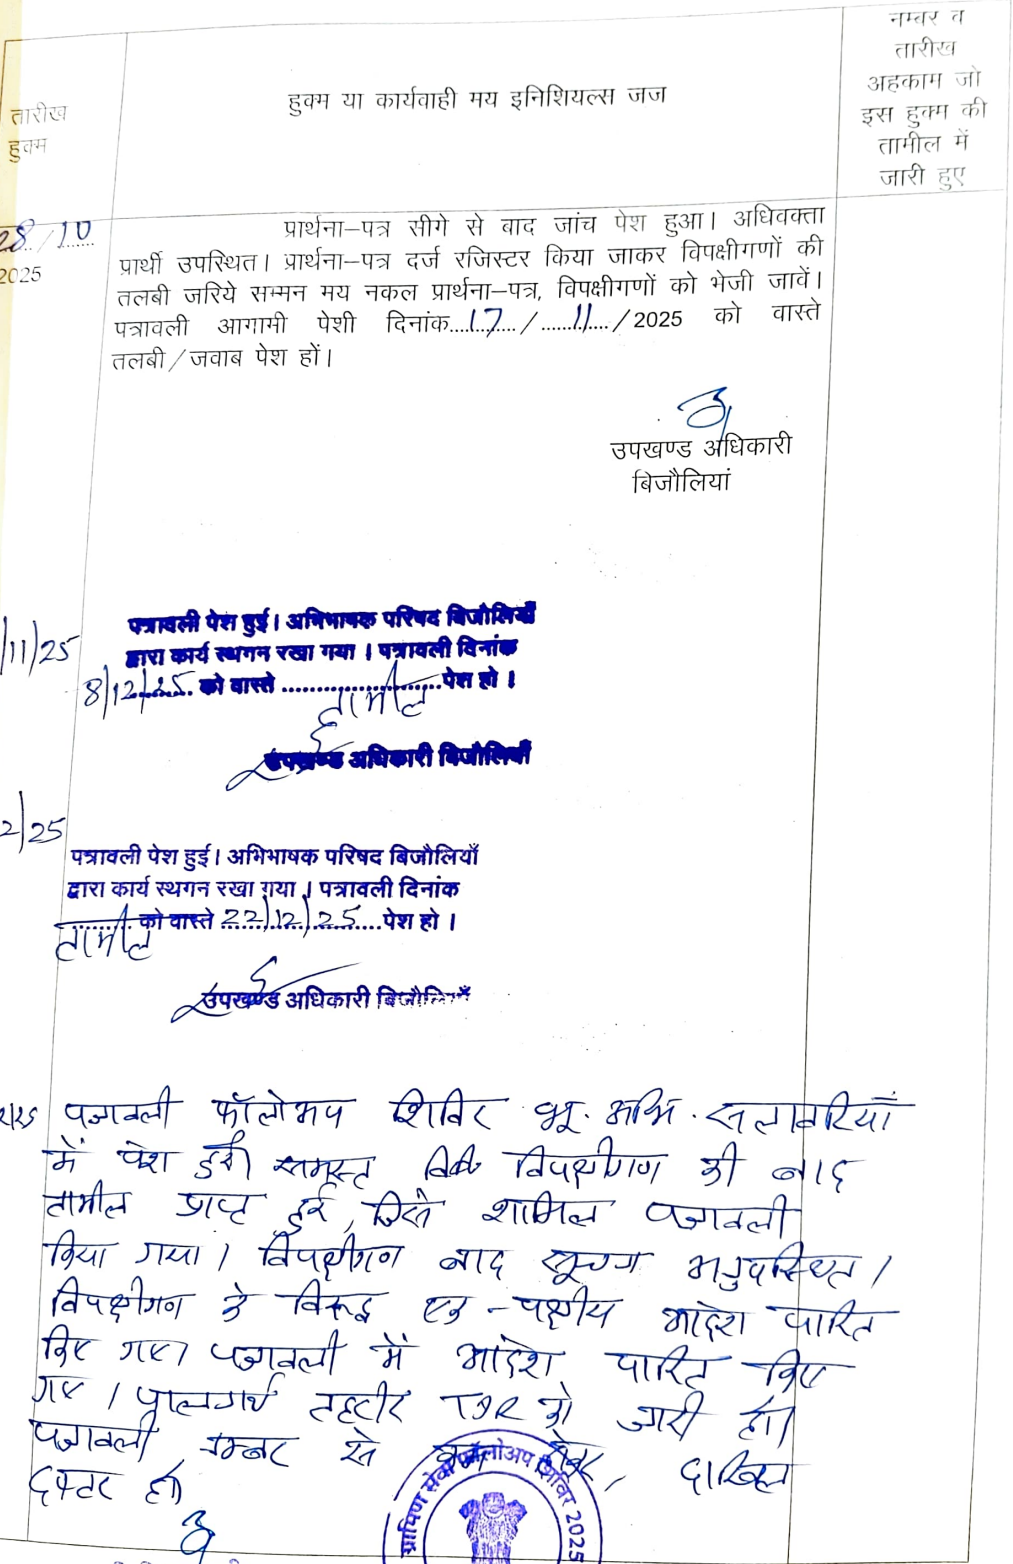 तारीख
हुक्म
हुक्म या कार्यवाही मय इनिशियल्स जज
नम्बर व
तारीख
अहकाम जो
इस हुक्म की
तामील में
जारी हुए
28/10
2025
प्रार्थना–पत्र सीगे से बाद जांच पेश हुआ। अधिवक्ता
प्रार्थी उपस्थित। प्रार्थना–पत्र दर्ज रजिस्टर किया जाकर विपक्षीगणों की
तलबी जरिये सम्मन मय नकल प्रार्थना–पत्र, विपक्षीगणों को भेजी जावें।
पत्रावली आगामी पेशी दिनांक....17..../....11..../2025 को वास्ते
तलबी/जवाब पेश हों।
उपखण्ड अधिकारी
बिजौलियां
/11/25
पत्रावली पेश हुई। अभिभाषक परिषद बिजौलियाँ
द्वारा कार्य स्थगन रखा गया। पत्रावली दिनांक
8/12/25 को वास्ते ........................पेश हो।
तामील
उपखण्ड अधिकारी बिजौलियाँ
2/25
पत्रावली पेश हुई। अभिभाषक परिषद बिजौलियाँ
द्वारा कार्य स्थगन रखा गया। पत्रावली दिनांक
.......... को वास्ते 22/12/25 पेश हो।
तामील
उपखण्ड अधिकारी बिजौलियाँ
पत्रावली फॉलोअप शिविर भू. अभि. सलावरियाँ
में पेश हुई। समस्त विपक्षीगण की बाद
तामील प्राप्त हुई, जिसे शामिल पत्रावली
किया गया। विपक्षीगण बाद सूचना अनुपस्थित।
विपक्षीगण के विरूद्ध एक-पक्षीय आदेश पारित
किए गए। पत्रावली में आदेश पारित किए
गए। पालनार्थ तहरीर TDR को जारी हो।
पत्रावली नम्बर से कम होकर, दाखिल
दफ्तर हो।
ग्रामिण सेवा फॉलोअप शिविर 2025